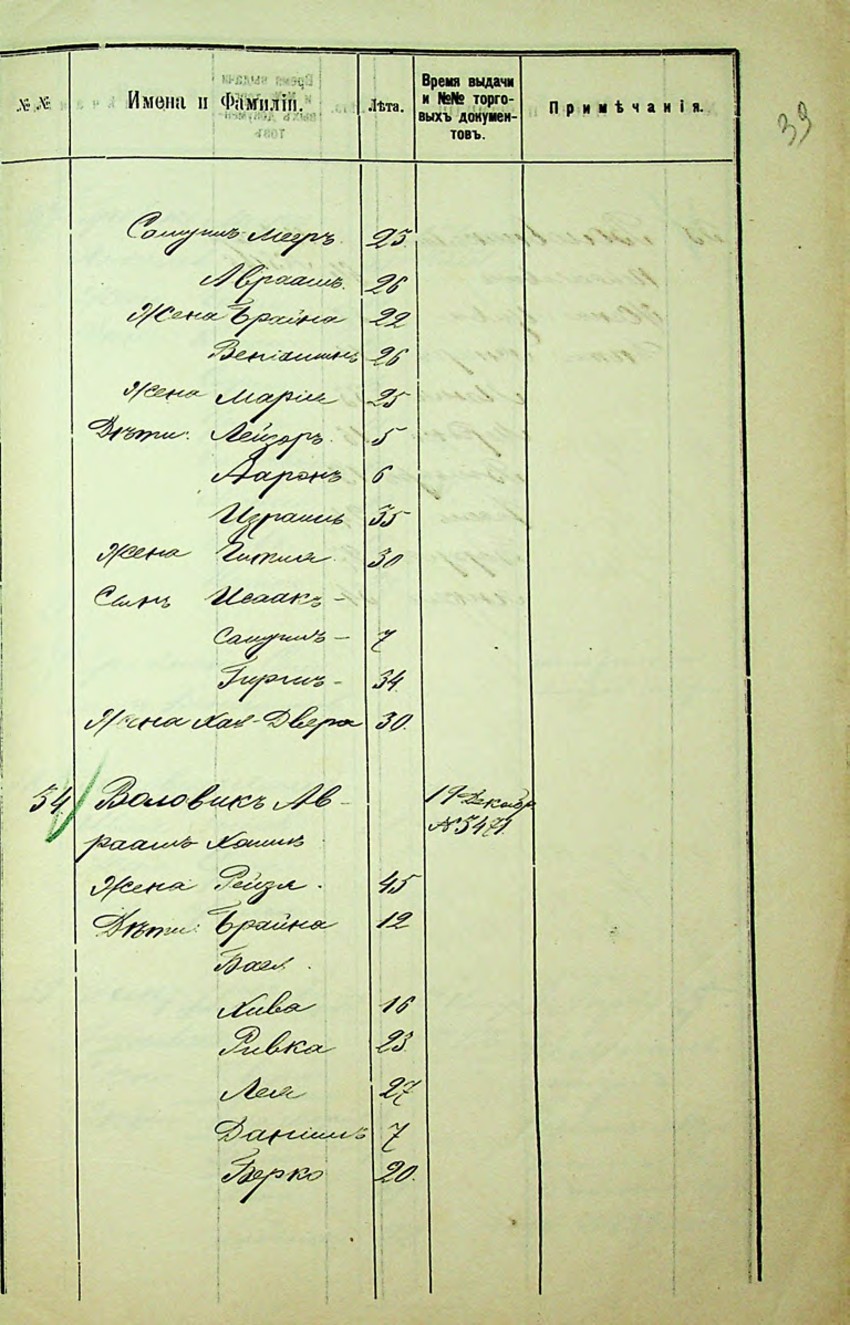 39
№№ Имена и Фамиліи. Лѣта. Время выдачи и №№ торговыхъ документовъ. Примѣчанія.
Самуилъ-Мееръ 23
Авраамъ. 26
Жена Брайна 22
Веніаминъ 26
Жена Марія 25
Дѣти: Лейзоръ 5
Ааронъ 6
Израиль 35
Жена 30
Сынъ Исаакъ-
Самуилъ- 7
34
Жена Хая-Двера 30.
54. Воловикъ Ав- 19 Декабр
раамъ Хаимъ №3471.
Жена Рейзл. 45
Дѣти: Брайна 12
Бася.
Хива 16
Ривка 23
Лея 27
Даніилъ 7
Берко 20.